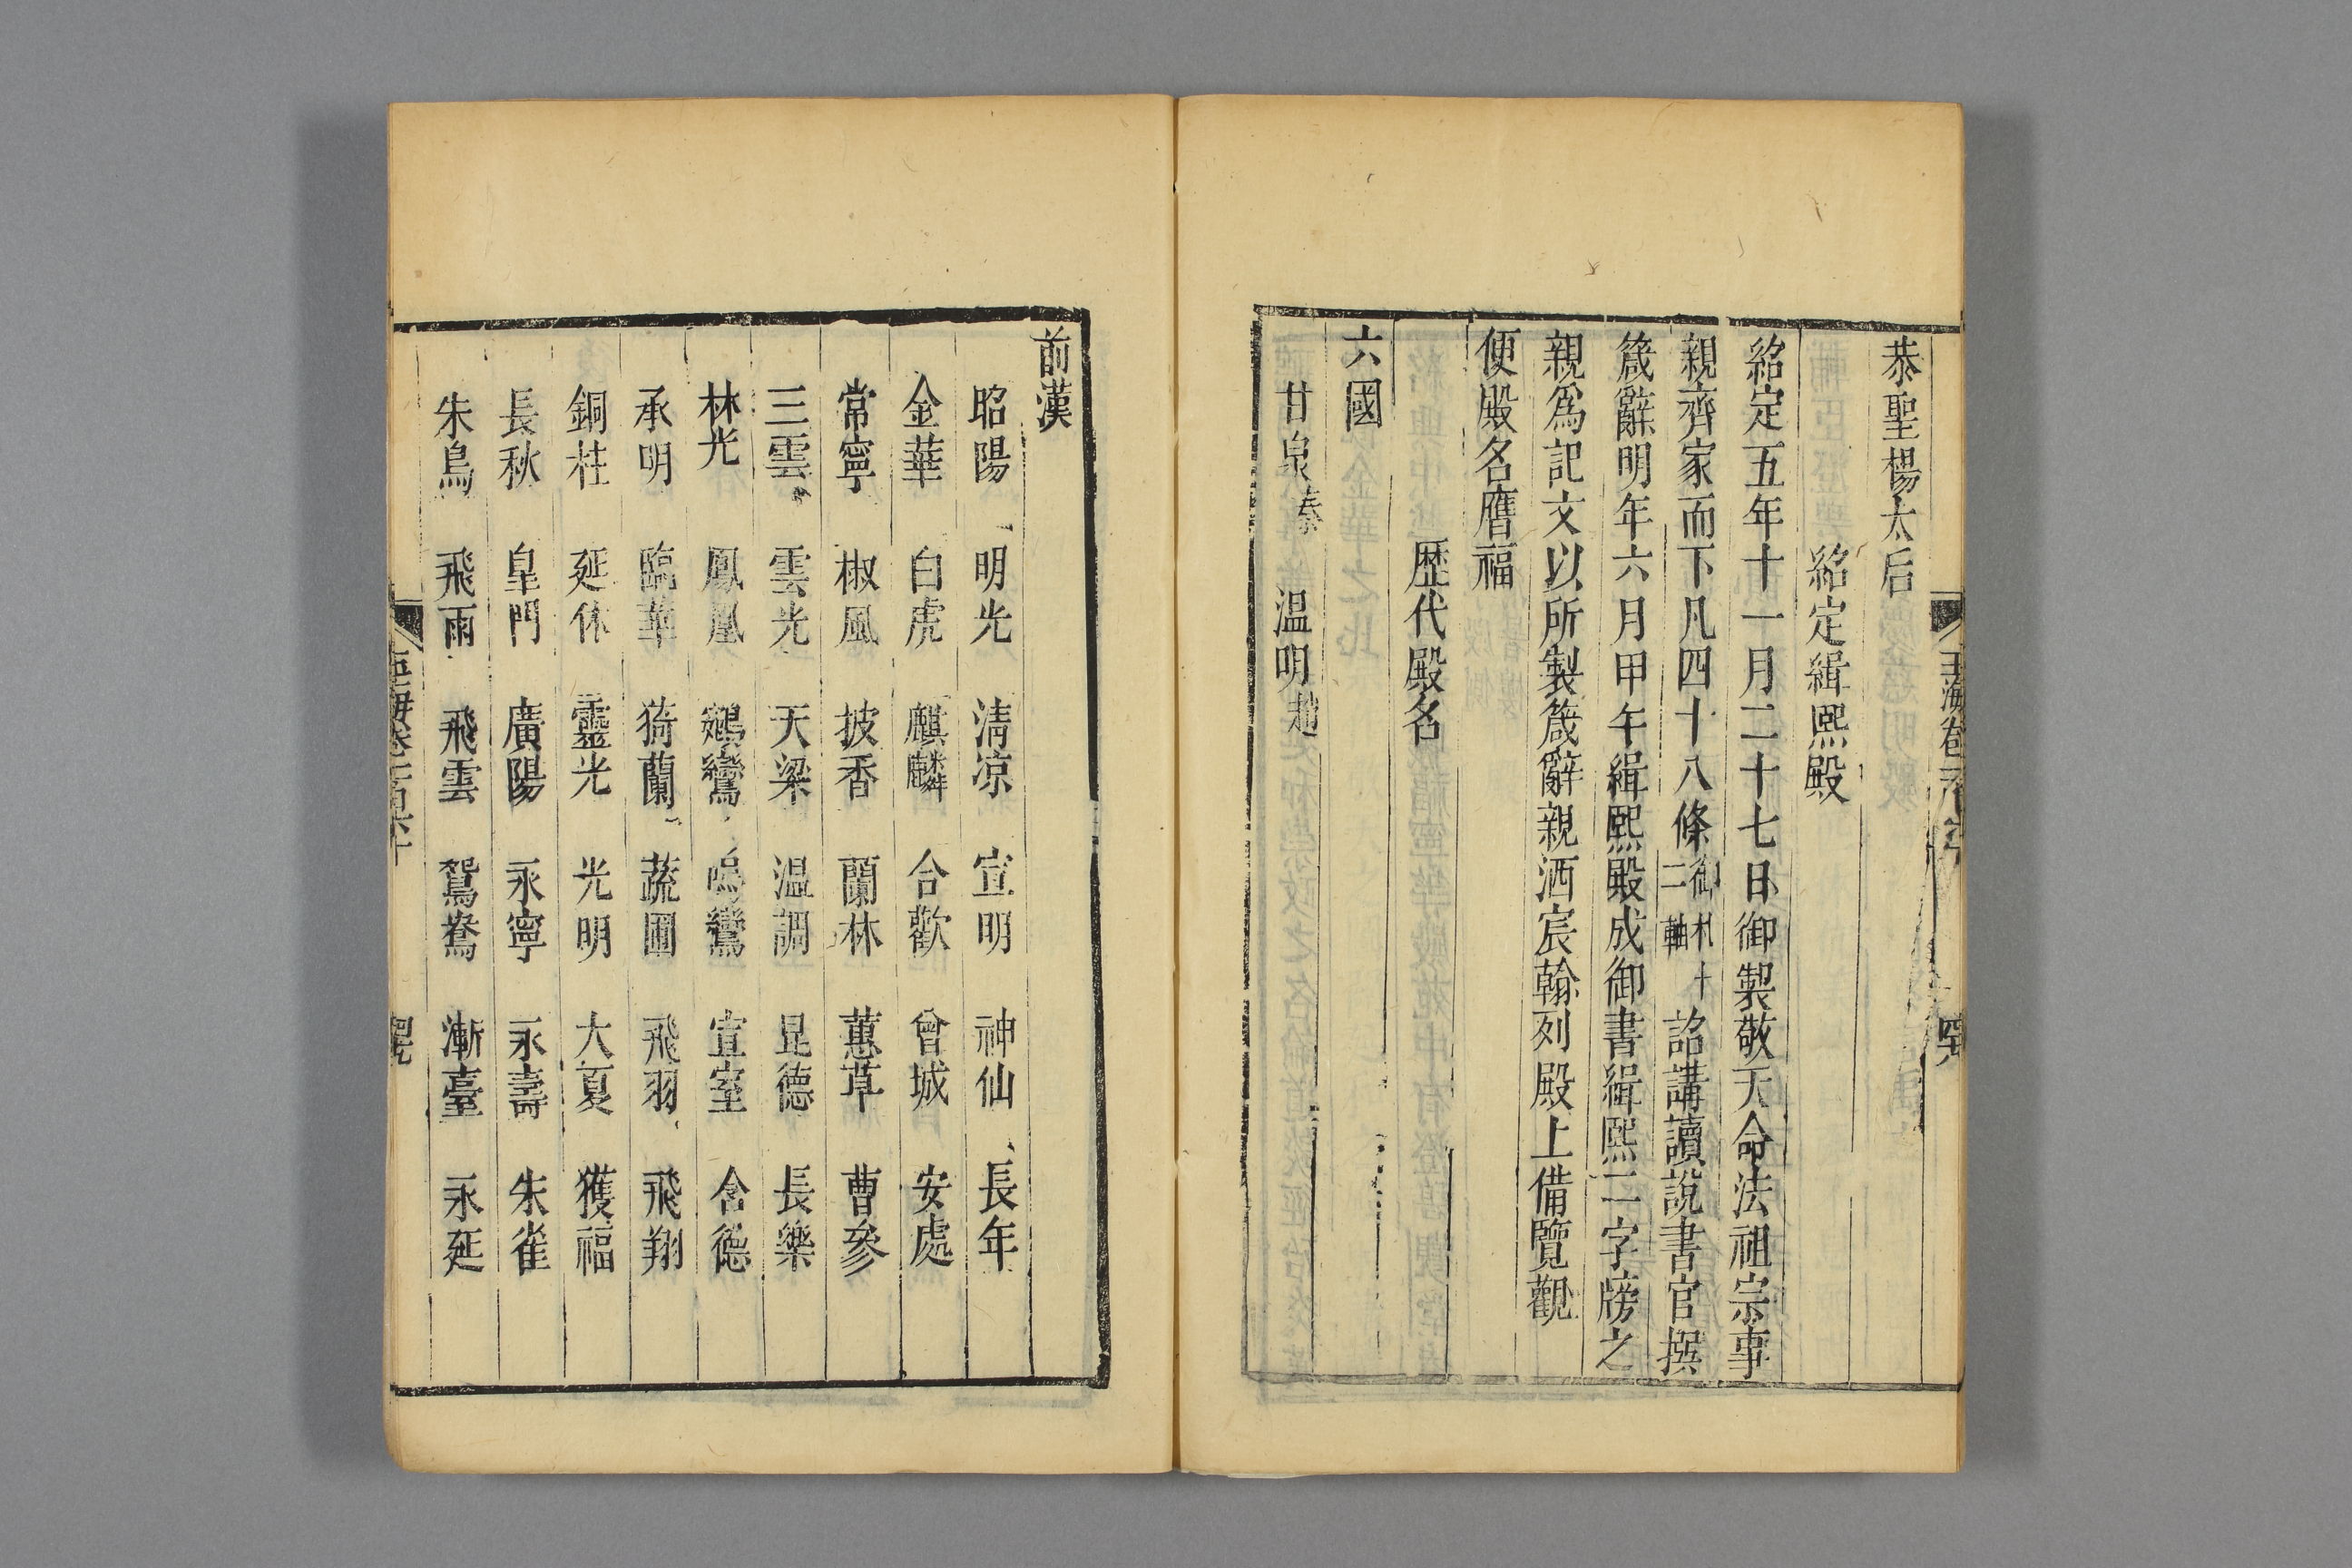 恭聖楊太后
紹定緝熙殿
紹定五年十一月二十七日御製敬天命法祖宗事
親齊家而下凡四十八條御札十二軸詔講讀說書官撰
箴辭明年六月甲午緝熙殿成御書緝熙二字牓之
親爲記文以所製箴辭親洒宸翰列殿上備覽觀
便殿名膺福
歷代殿名
六國
甘泉秦 温明趙
前漢
昭陽 明光 清凉 宣明 神仙 長年
金華 白虎 麒麟 合歡 曾城 安處
常寧 椒風 披香 蘭林 蕙草 曹參
三雲 雲光 天梁 温調 昆德 長樂
林光 鳳凰 鵷鸞 鳴鸞 宣室 含德
承明 臨華 猗蘭 蔬圃 飛羽 飛翔
銅柱 延休 靈光 光明 大夏 獲福
長秋 皇門 廣陽 永寧 永壽 朱雀
朱鳥 飛雨 飛雲 鴛鴦 漸臺 永延